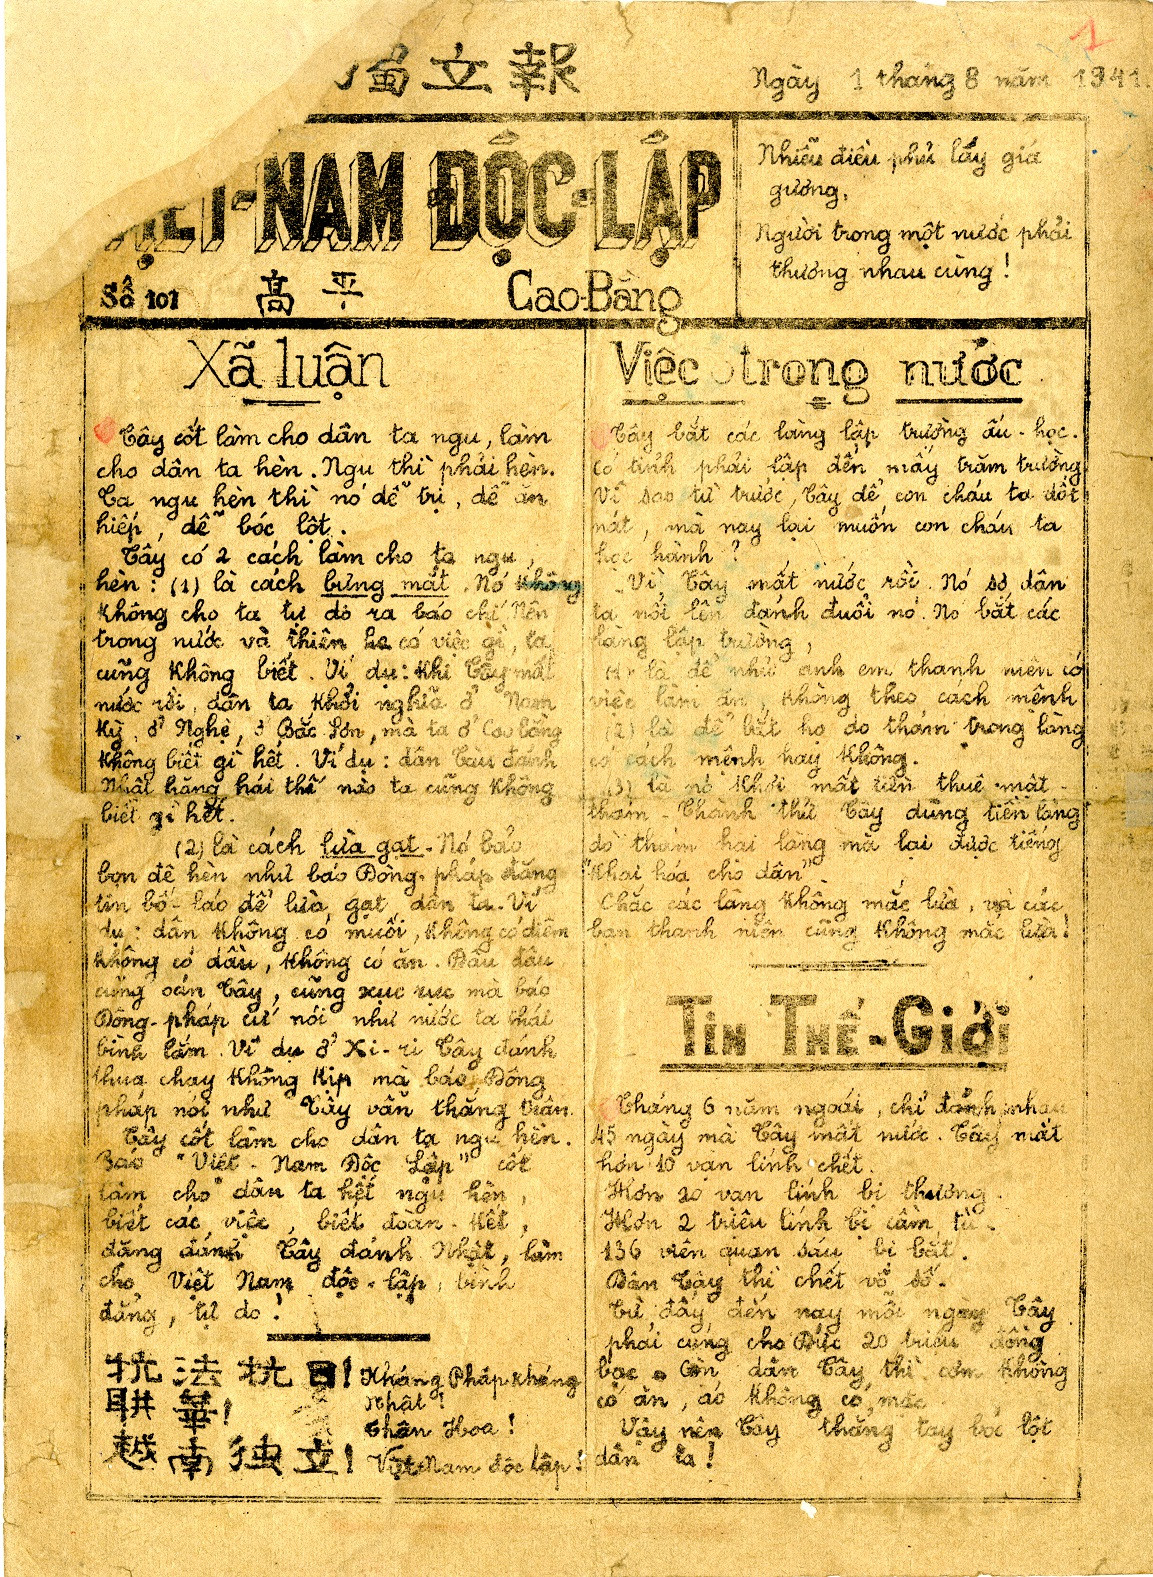 獨立報
Ngày 1 tháng 8 năm 1941.
1
VIỆT-NAM ĐỘC-LẬP
Số 101
高平
Cao-Bằng
Nhiễu điều phủ lấy giá
gương,
Người trong một nước phải
thương nhau cùng!
Xã luận
Tây cốt làm cho dân ta ngu, làm
cho dân ta hèn. Ngu thì phải hèn.
Ta ngu hèn thì nó dễ trị, dễ ăn
hiếp, dễ bóc lột.
Tây có 2 cách làm cho ta ngu,
hèn: (1) là cách bưng mắt. Nó không
không cho ta tự do ra báo chí. Nên
trong nước và thiên hạ có việc gì, ta
cũng không biết. Ví dụ: khi Tây mất
nước rồi, dân ta khởi nghĩa ở Nam
Kỳ, ở Nghệ, ở Bắc Sơn, mà ta ở Cao bằng
không biết gì hết. Ví dụ: dân Tàu đánh
Nhật hăng hái thế nào ta cũng không
biết gì hết.
(2) là cách lừa gạt. Nó bảo
bọn đê hèn như báo Đông-pháp đăng
tin bố-láo để lừa gạt dân ta. Ví
dụ: dân không có muối, không có diêm
không có dầu, không có ăn. Đâu đâu
cũng oán Tây, cũng xục xục mà báo
Đông-pháp cứ nói như nước ta thái
bình lắm. Ví dụ ở Xi-ri Tây đánh
thua chạy không kịp mà báo Đông
pháp nói như Tây vẫn thắng trận.
Tây cốt làm cho dân ta ngu hèn.
Báo "Việt-Nam Độc Lập" cốt
làm cho dân ta hết ngu hèn,
biết các việc, biết đoàn-kết,
đặng đánh Tây đánh Nhật, làm
cho Việt Nam độc-lập, bình
đẳng, tự do!
抗法抗日!
聯華!
越南独立!
Kháng Pháp kháng
Nhật!
Thân Hoa!
Việt Nam độc lập!
Việc trong nước
Tây bắt các làng lập trường ấu-học.
Có tỉnh phải lập đến mấy trăm trường.
Vì sao từ trước, Tây để con cháu ta dốt
nát, mà nay lại muốn con cháu ta
học hành?
Vì, Tây mất nước rồi. Nó sợ dân
ta nổi lên đánh đuổi nó. Nó bắt các
làng lập trường,
(1) là để nhử anh em thanh niên có
việc làm ăn, không theo cách mệnh
(2) là để bắt họ do thám trong làng
có cách mệnh hay không.
(3) là nó khỏi mất tiền thuê mật-
thám. Thành thử Tây dùng tiền làng
dò thám hại làng mà lại được tiếng
"khai hóa cho dân".
Chắc các làng không mắc lừa, và các
bạn thanh niên cũng không mắc lừa!
Tin Thế-Giới
Tháng 6 năm ngoái, chỉ đánh nhau
45 ngày mà Tây mất nước. Tây mất
hơn 10 vạn lính chết.
Hơn 20 vạn lính bị thương.
Hơn 2 triệu lính bị cầm tù.
136 viên quan sáu bị bắt.
Dân Tây thì chết vô số.
Từ đấy đến nay mỗi ngày Tây
phải cung cho Đức 20 triệu đồng
bạc. Còn dân Tây thì cơm không
có ăn, áo không có mặc.
Vậy nên Tây thẳng tay bóc lột
dân ta!